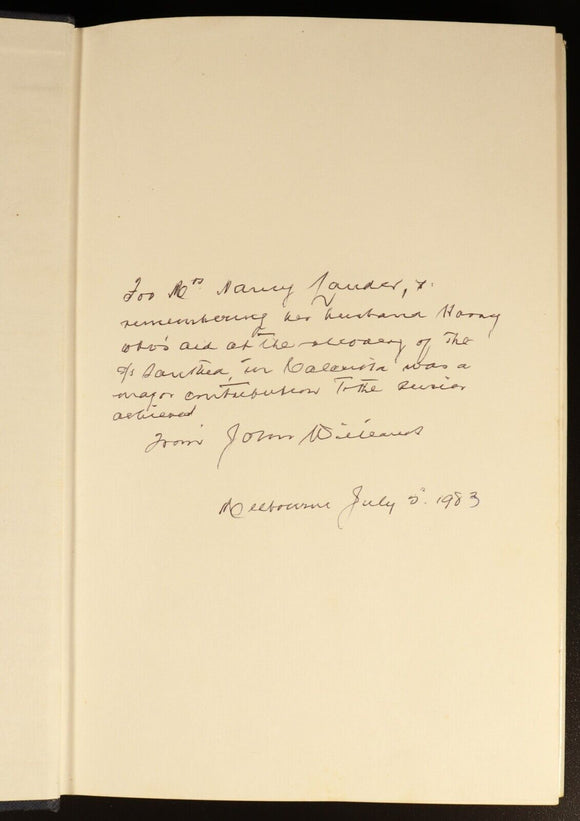 For Mrs Nancy Lauder, &
remembering her husband Harry
who's aid at the recovery of the
S/S Santhea, in Calcutta was a
major contribution To the
achieved
From John Williams
Melbourne July 5. 1983